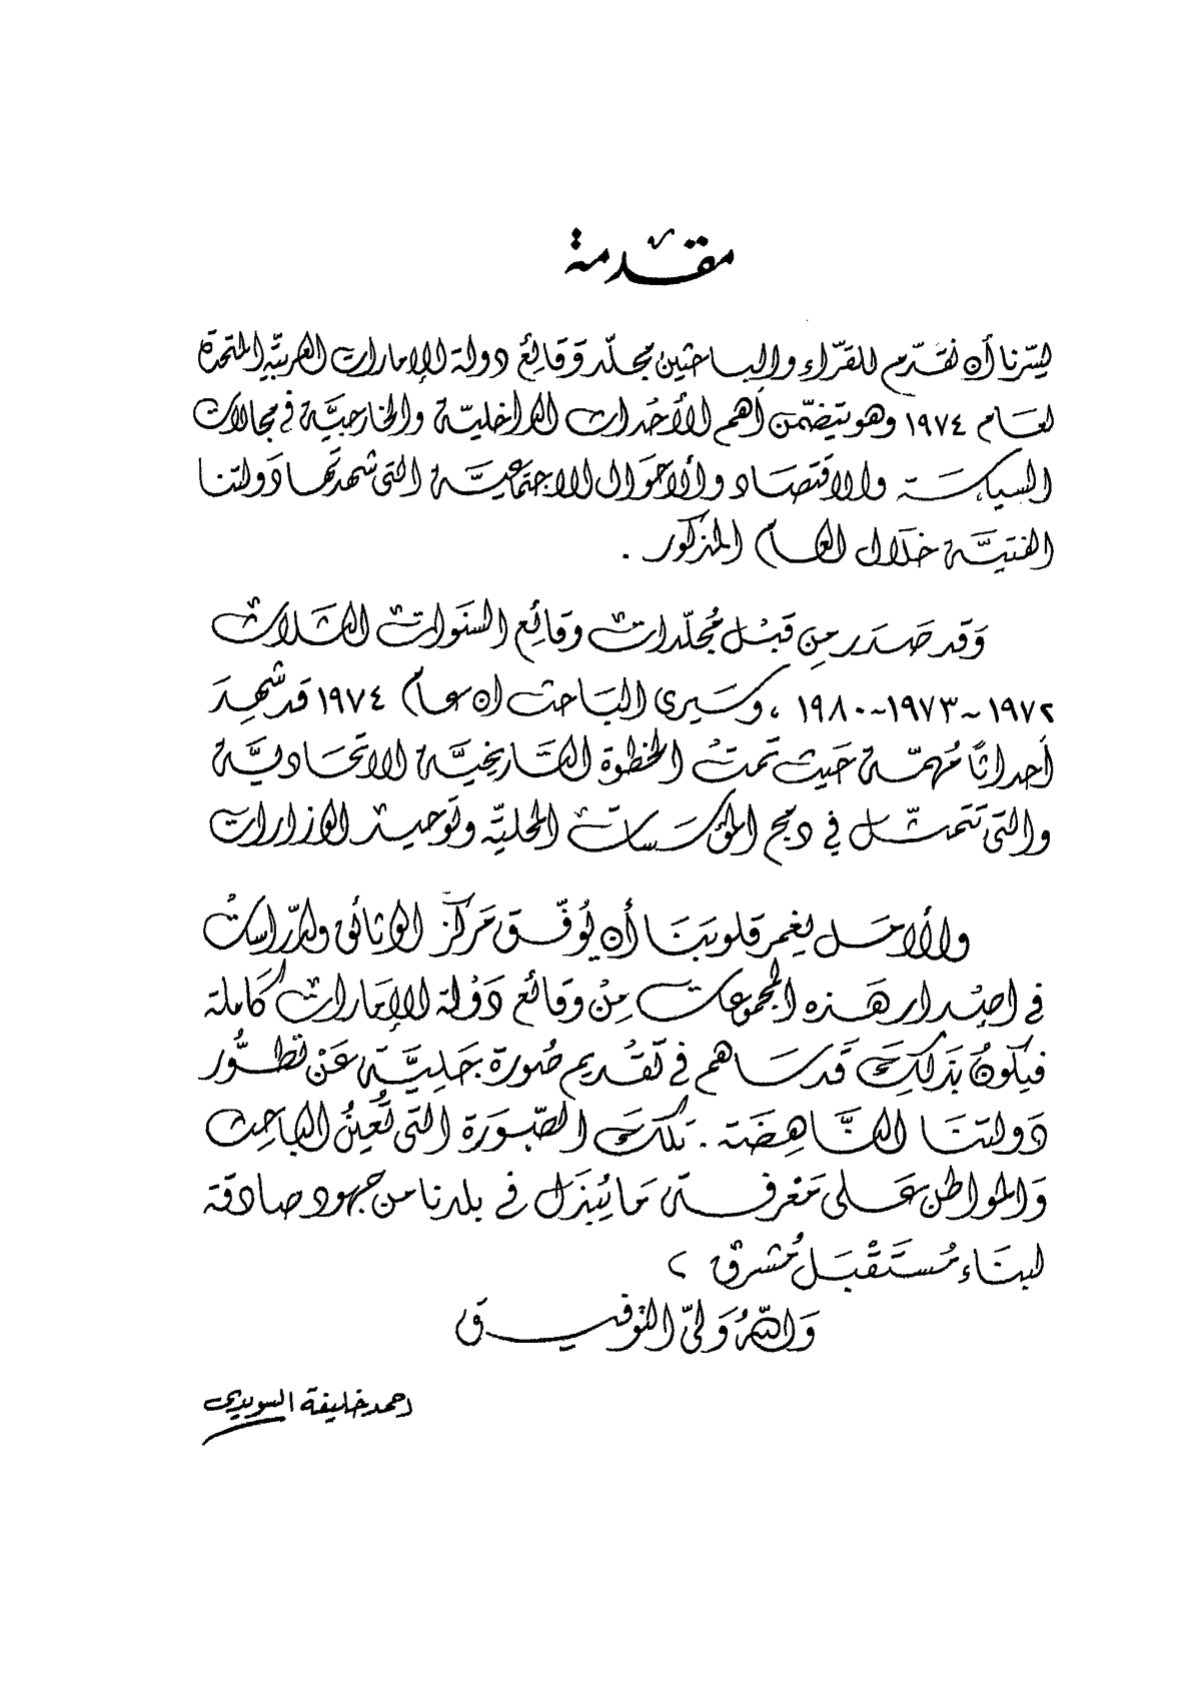 مقدمة
يسرنا أن نقدّم للقرّاء والباحثين مجلّد وقائع دولة الإمارات العربيّة المتحدة
لعام ١٩٧٤ وهو يتضمّن أهم الأحداث الداخليّة والخارجيَّة في مجالات
السياسة والاقتصاد والأحوال الاجتماعيَّة التى شهدتها دَولتنا
الفتيَّة خلَال العام المذكور .
وَقد صَدَر مِن قَبْل مُجلّدات وقائع السنَوات الثَلاث
١٩٧٢ - ١٩٧٣ - ١٩٨٠ ، وَسَيرى البَاحث ان عام ١٩٧٤ قد شَهِدَ
أحداثًا مُهمّة حَيث تَمت الخطوة التَّاريخيَّة الاتحَاديَّة
والتى تَتَمثّل في دمج المؤسَسات المحليّه وتوَحيد الوزارات
والأمَل يغمر قلوبَنَا أن يُوفّق مَركَز الوثائق والدّراسات
في اصْدار هَذه المجموعات مِنْ وقَائع دَوْلة الإمَارات كَاملة
فيكونُ بذَلكَ قَد سَاهم في تَقْديم صُورة جَلِيَّة عَنْ تطوُّر
دَولتنَا النَّاهِضَة . تلكَ الصّورَة التى تُعينُ الباحِث
وَالمواطن عَلى مَعْرفة مَا يُبذَل في بلدنا من جهود صادقة
لبنَاء مُستَقْبَل مُشرق ،
وَاللهُ وَلىّ التوفيق
احمد خليفة السويدي